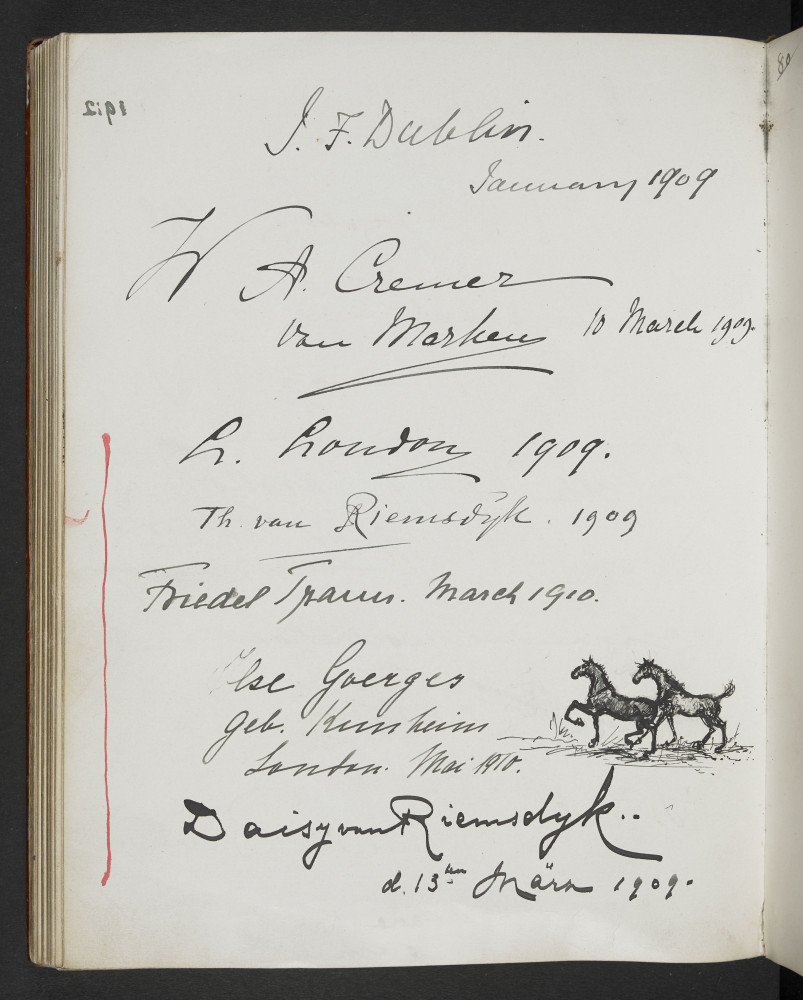 1912
J. F. Dublin.
January 1909
W A. Cremer
van Marken 10 March 1909.
L. London 1909.
Th. van Riemsdyk. 1909
Friedel March 1910.
Ilse Goerges
geb. Kunheim
London. Mai 1910.
Daisy van Riemsdyk..
d. 13ten März 1909.
80